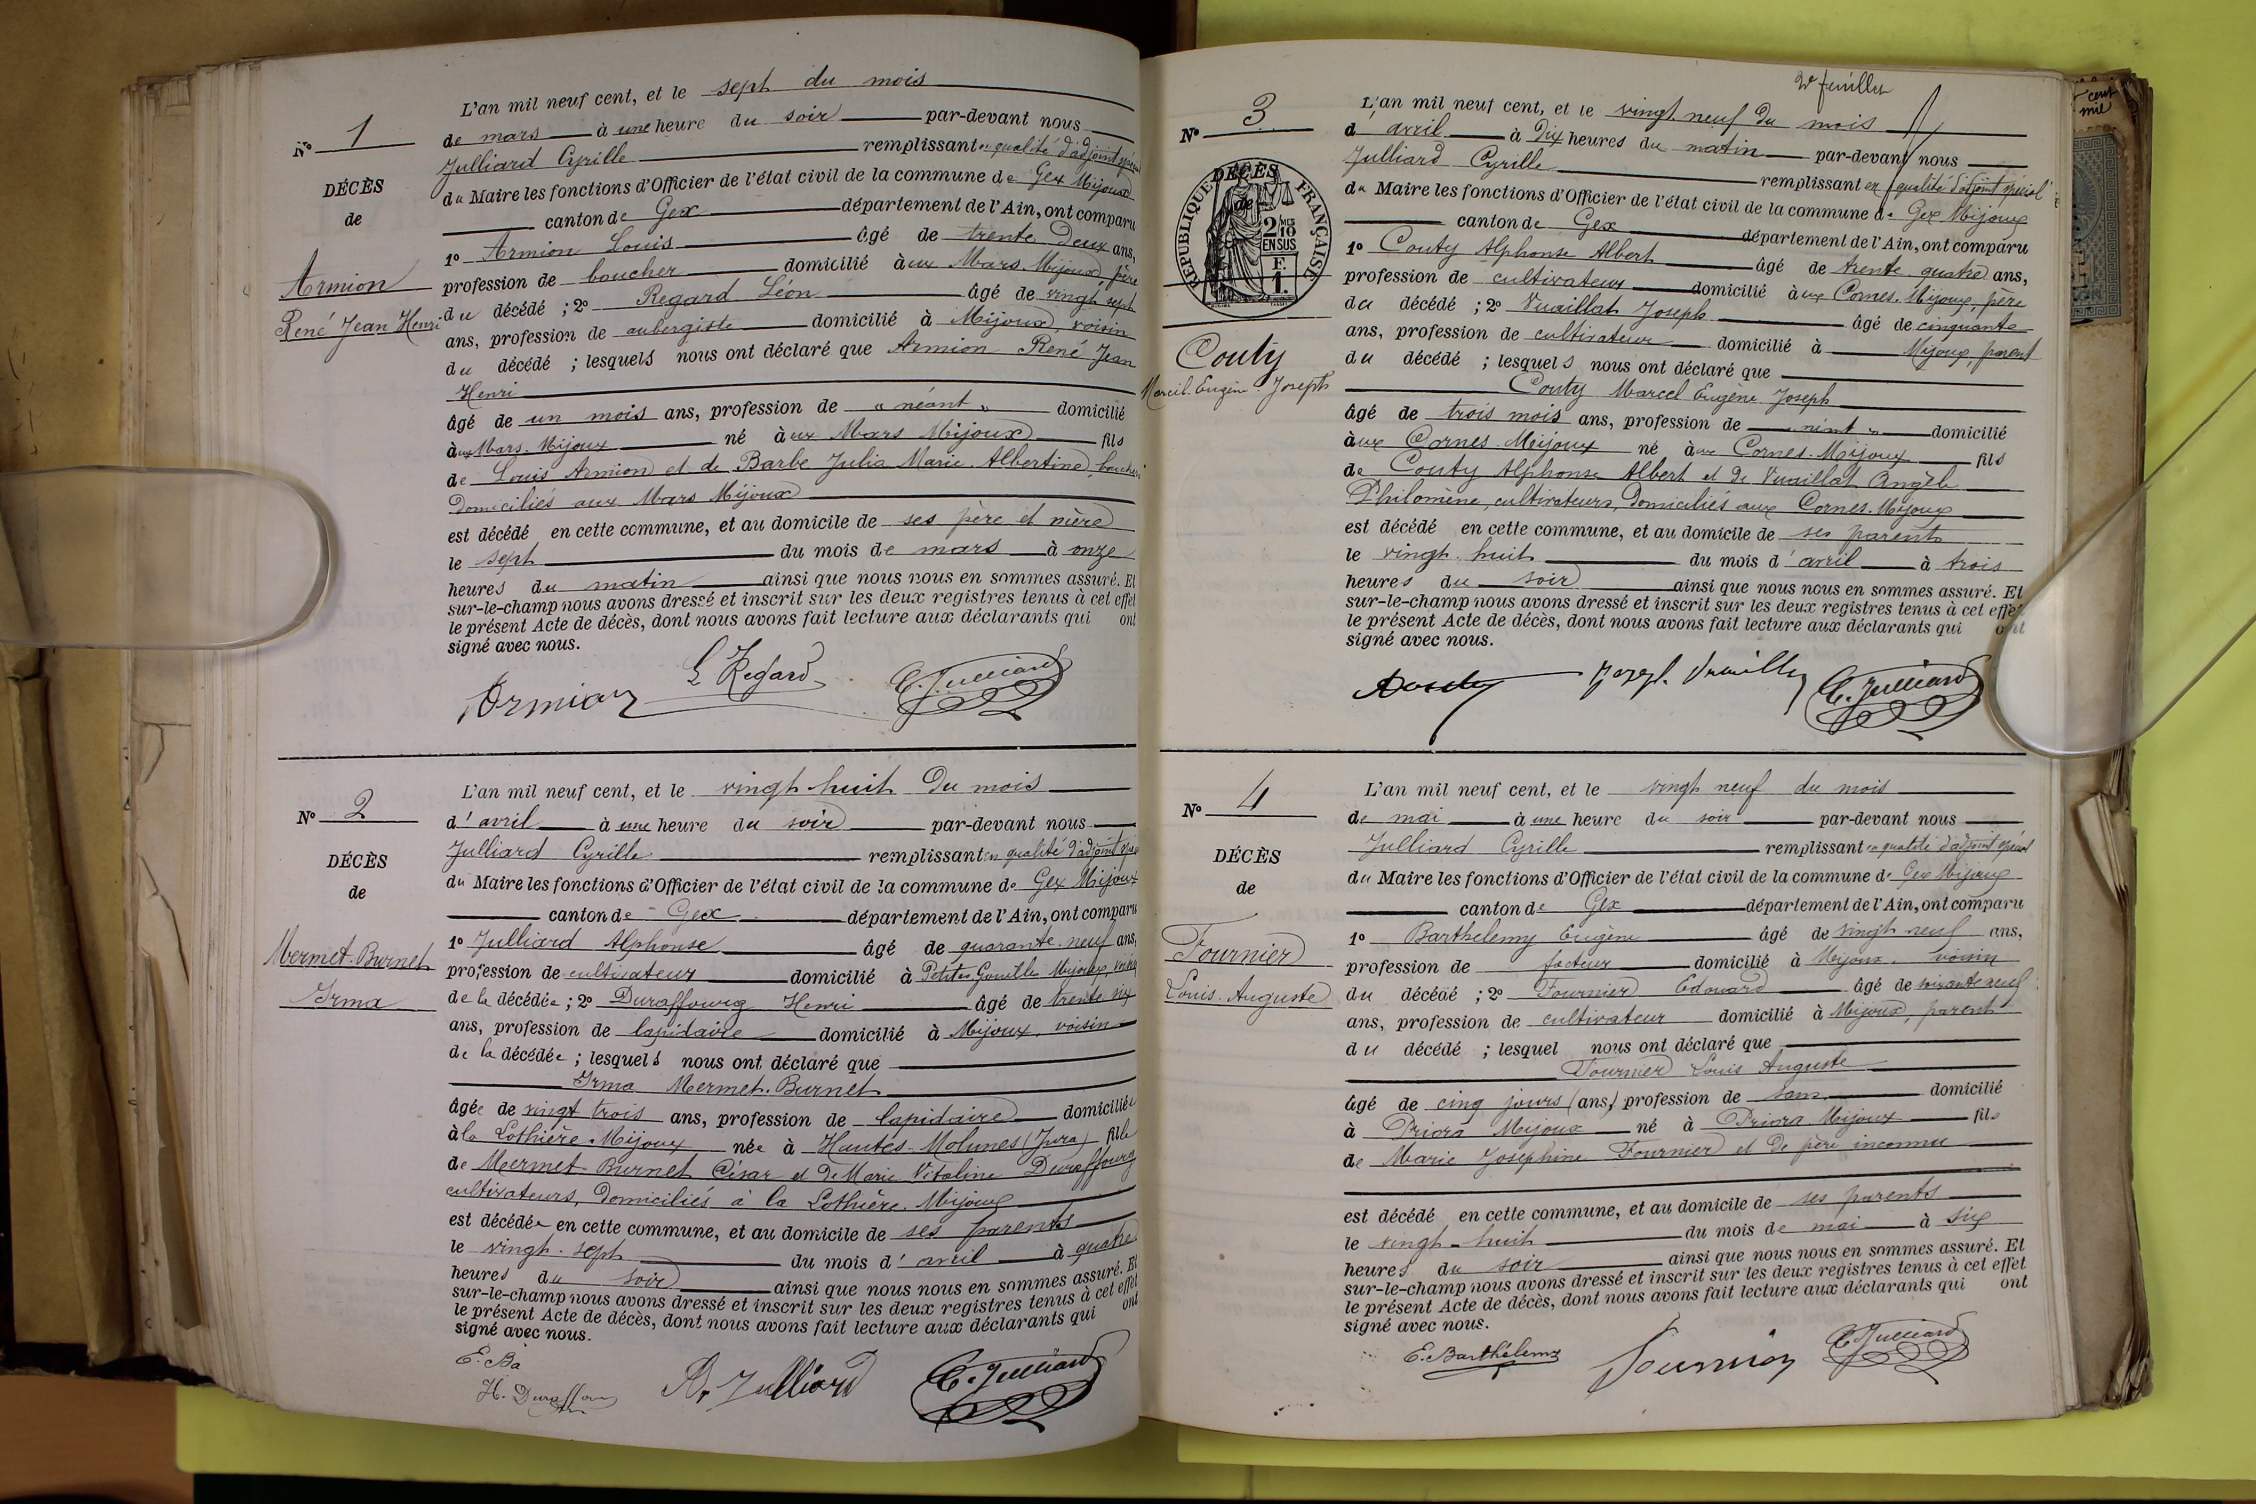 L'an mil neuf cent, et le sept du mois
N° 1
de mars à une heure du soir par-devant nous
Julliard Cyrille remplissant en qualité d'adjoint spécial
DÉCÈS
du Maire les fonctions d'Officier de l'état civil de la commune de Gex Mijoux
de
canton de Gex département de l'Ain, ont comparu
1° Armion Louis âgé de trente deux ans,
Armion
profession de boucher domicilié aux Mars Mijoux, père
René Jean Henri
du décédé ; 2° Regard Léon âgé de vingt sept
ans, profession de aubergiste domicilié à Mijoux, voisin
du décédé ; lesquels nous ont déclaré que Armion René Jean
Henri
âgé de un mois ans, profession de " néant " domicilié
aux Mars Mijoux né aux Mars Mijoux fils
de Louis Armion et de Barbe Julia Marie Albertine, bouchers
domiciliés aux Mars Mijoux
est décédé en cette commune, et au domicile de ses père et mère
le sept du mois de mars à onze
heures du matin ainsi que nous nous en sommes assuré. Et
sur-le-champ nous avons dressé et inscrit sur les deux registres tenus à cet effet
le présent Acte de décès, dont nous avons fait lecture aux déclarants qui ont
signé avec nous.
Armion L Regard C. Julliard
L'an mil neuf cent, et le vingt huit du mois
N° 2
d'avril à une heure du soir par-devant nous
Julliard Cyrille remplissant en qualité d'adjoint spécial
DÉCÈS
du Maire les fonctions d'Officier de l'état civil de la commune de Gex Mijoux
de
canton de Gex département de l'Ain, ont comparu
1° Julliard Alphonse âgé de quarante neuf ans,
Mermet-Burnet
profession de cultivateur domicilié à Petites Mijoux, voisin
Irma
de la décédée ; 2° Duraffourg Henri âgé de trente six
ans, profession de lapidaire domicilié à Mijoux, voisin
de la décédée ; lesquels nous ont déclaré que
Irma Mermet-Burnet
âgée de vingt trois ans, profession de lapidaire domiciliée
à la Lothière-Mijoux née à Hautes-Molunes (Jura) fille
de Mermet-Burnet César et de Marie Vitaline Duraffourg
cultivateurs, domiciliés à la Lothière-Mijoux
est décédée en cette commune, et au domicile de ses parents
le vingt-sept du mois d'avril à quatre
heures du soir ainsi que nous nous en sommes assuré. Et
sur-le-champ nous avons dressé et inscrit sur les deux registres tenus à cet effet
le présent Acte de décès, dont nous avons fait lecture aux déclarants qui ont
signé avec nous.
E. Ba
H. Duraffour A. Julliard C. Julliard
2e feuillet
L'an mil neuf cent, et le vingt neuf du mois
N° 3
d'avril à dix heures du matin par-devant nous
Julliard Cyrille remplissant en qualité d'adjoint spécial
DÉCÈS
de
RÉPUBLIQUE FRANÇAISE
2 10
EN SUS
F.
1.
du Maire les fonctions d'Officier de l'état civil de la commune de Gex Mijoux
canton de Gex département de l'Ain, ont comparu
1° Couty Alphonse Albert âgé de trente quatre ans,
profession de cultivateur domicilié aux Cornes-Mijoux, père
du décédé ; 2° Vuaillat Joseph âgé de cinquante
ans, profession de cultivateur domicilié à Mijoux, parent
Couty
Marcel Eugène Joseph
du décédé ; lesquels nous ont déclaré que
Couty Marcel Eugène Joseph
âgé de trois mois ans, profession de " néant " domicilié
aux Cornes-Mijoux né aux Cornes-Mijoux fils
de Couty Alphonse Albert et de Vuaillat Angèle
Philomène, cultivateurs, domiciliés aux Cornes-Mijoux
est décédé en cette commune, et au domicile de ses parents
le vingt-huit du mois d'avril à trois
heures du soir ainsi que nous nous en sommes assuré. Et
sur-le-champ nous avons dressé et inscrit sur les deux registres tenus à cet effet
le présent Acte de décès, dont nous avons fait lecture aux déclarants qui ont
signé avec nous.
Couty Joseph Vuaillat C. Julliard
L'an mil neuf cent, et le vingt neuf du mois
N° 4
de mai à une heure du soir par-devant nous
Julliard Cyrille remplissant en qualité d'adjoint spécial
DÉCÈS
du Maire les fonctions d'Officier de l'état civil de la commune de Gex Mijoux
de
canton de Gex département de l'Ain, ont comparu
1° Barthelemy Eugène âgé de vingt neuf ans,
Fournier
profession de facteur domicilié à Mijoux, voisin
Louis-Auguste
du décédé ; 2° Fournier Edouard âgé de soixante neuf
ans, profession de cultivateur domicilié à Mijoux, parent
du décédé ; lesquel nous ont déclaré que
Fournier Louis Auguste
âgé de cinq jours (ans,) profession de sans domicilié
à Priora Mijoux né à Priora Mijoux fils
de Marie Joséphine Fournier et de père inconnu
est décédé en cette commune, et au domicile de ses parents
le vingt-huit du mois de mai à six
heures du soir ainsi que nous nous en sommes assuré. Et
sur-le-champ nous avons dressé et inscrit sur les deux registres tenus à cet effet
le présent Acte de décès, dont nous avons fait lecture aux déclarants qui ont
signé avec nous.
E. Barthélemy Fournier C. Julliard
cent
mil